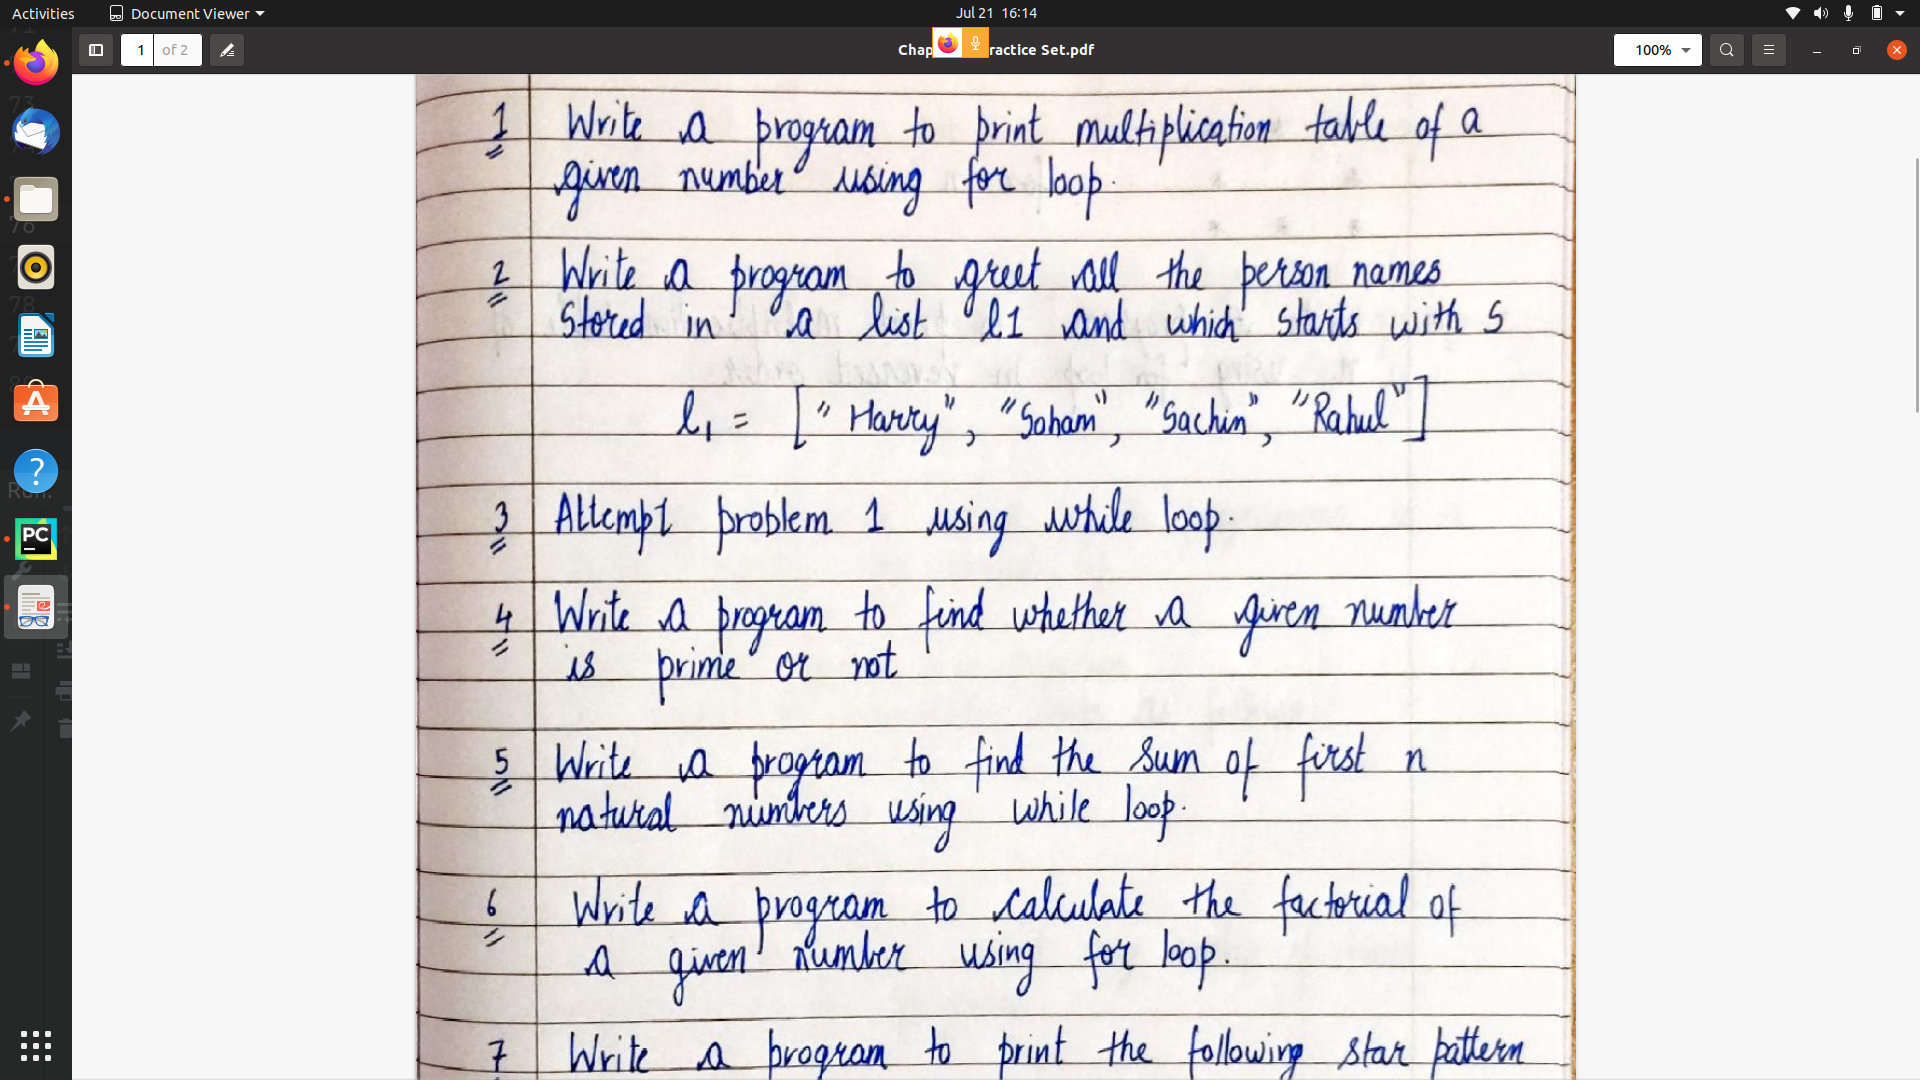 Activities
Document Viewer
Jul 21 16:14
1 of 2
Chap
ractice Set.pdf
100%
1 Write a program to print multiplication table of a
given number using for loop.
2 Write a program to greet all the person names
Stored in a list l1 and which starts with S
l1 = ["Harry", "Soham", "Sachin", "Rahul"]
3 Attempt problem 1 using while loop.
4 Write a program to find whether a given number
is prime or not
5 Write a program to find the sum of first n
natural numbers using while loop.
6 Write a program to calculate the factorial of
a given number using for loop.
7 Write a program to print the following star pattern
PC